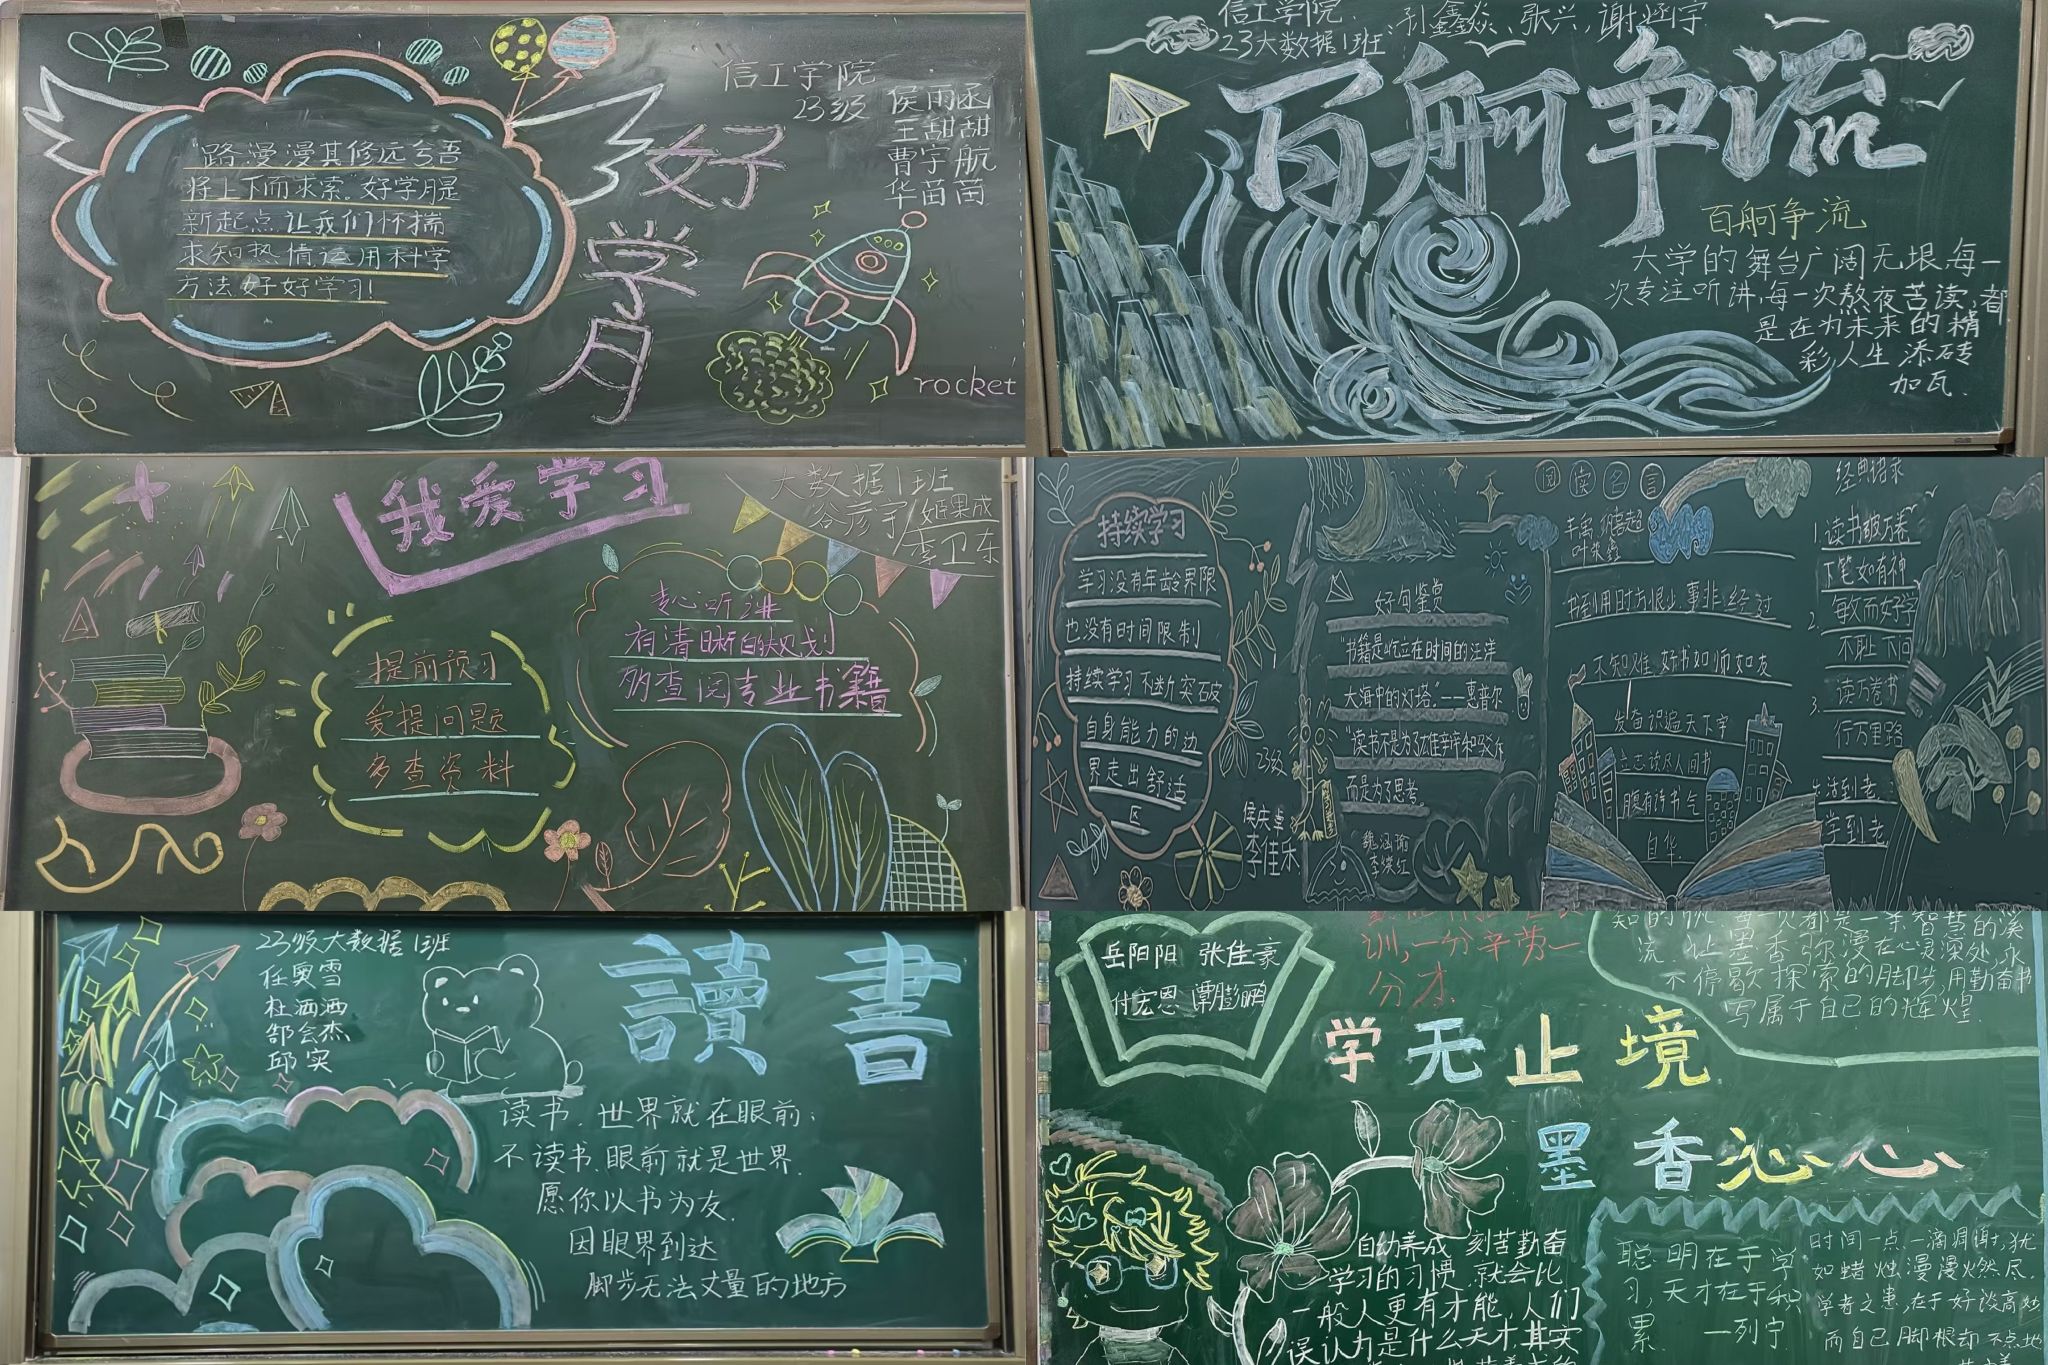 信工学院
23级
侯雨函
王甜甜
曹宇航
华苗苗
好
学
月
"路漫漫其修远兮吾
将上下而求索."好学月是
新起点让我们怀揣
求知热情运用科学
方法好好学习!
rocket
信工学院
23大数据1班:孙鑫焱、张兴,谢
百舸争流
百舸争流
大学的舞台广阔无垠.每一
次专注听讲,每一次熬夜苦读,都
是在为未来的精
彩人生添砖
加瓦.
我爱学习
大数据1班
谷彦宇 姬果成
李卫东
提前预习
爱提问题
多查资料
专心听讲
有清晰的规划
多查阅专业书籍
持续学习
学习没有年龄界限
也没有时间限制
持续学习不断突破
自身能力的边
界走出舒适
区
23级
侯庆堂
李佳乐
好句鉴赏
"书籍是屹立在时间的汪洋
大海中的灯塔."——惠普尔
"读书不是为了雄辩和驳斥
而是为了思考.
魏涵瑜
阅读名言
书到用时方恨少事非经过
不知难.好书如师如友
发奋识遍天下字
立志读尽人间书
腹有诗书气
自华.
经典语录
1.读书破万卷
下笔如有神
2.敏而好学
不耻下问
3.读万卷书
行万里路
活到老,
学到老
23级大数据1班
任奥雪
杜洒洒
郜会杰
邱实
讀書
读书.世界就在眼前;
不读书.眼前就是世界.
愿你以书为友.
因眼界到达
脚步无法丈量的地方
岳阳阳 张佳豪
付宏恩 谭膨鹏
训,一分辛劳一
分才.
知的 每一页都是一条智慧的溪
流.让墨香弥漫在心灵深处,永
不停歇探索的脚步,用勤奋书
写属于自己的辉煌
学无止境
墨香沁心
自幼养成刻苦勤奋
学习的习惯,就会比
一般人更有才能,人们
误认为是什么天才.其实
聪明在于学
习,天才在于积
累. 一列宁
时间一点一滴凋谢,犹
如蜡烛漫漫燃尽.
学者之患,在于好谈高妙
而自己脚根却不点地